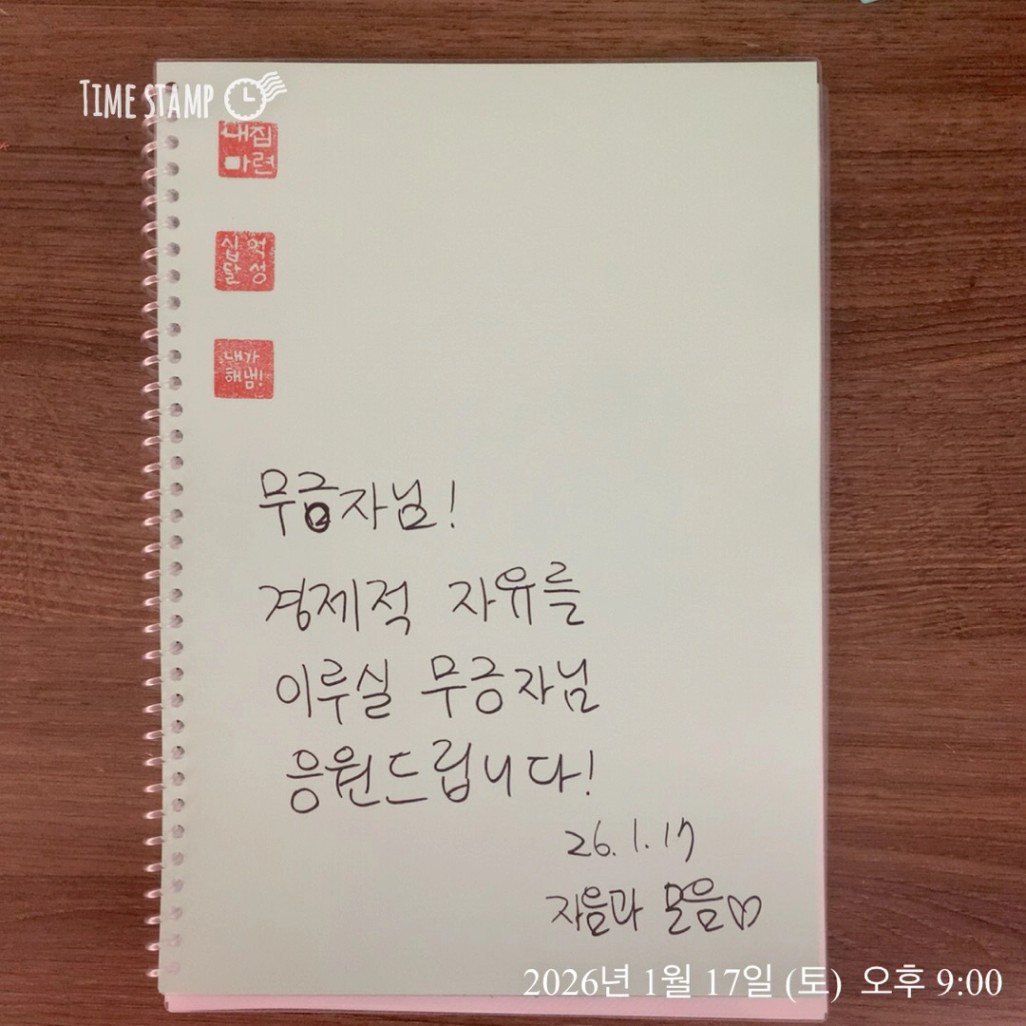 TIME STAMP
내집
마련
십억
달성
내가
해냄!
무급자님!
경제적 자유를
이루실 무급자님
응원드립니다!
26.1.17
자음과 모음♡
2026년 1월 17일 (토) 오후 9:00